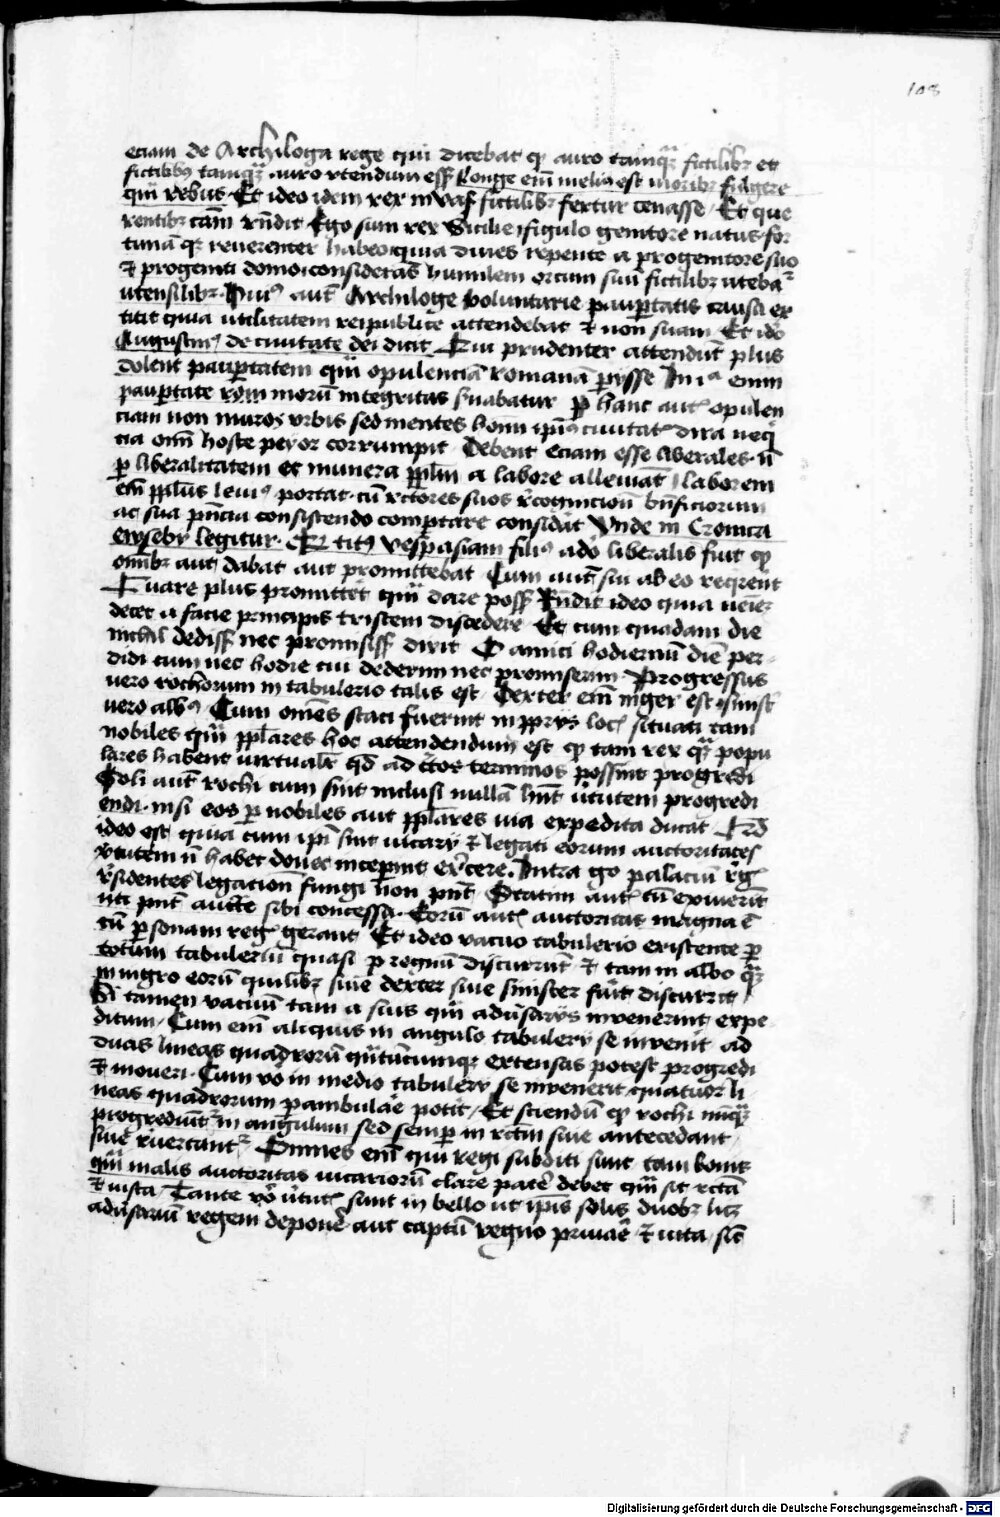 108
eciam de Archiloga rege qui dicebat qp auro tamqz fictilibz et
fictilibus tamqz auro vtendum esse Longe eni melius est moribz fulgere
qm rebus Et ideo idem rex in vas fictilibz fertur cenasse Et que
rentibz cam Rndit Ego sum rex Sicilie figulo genitore natus for
tunā qz reuerenter habeo quia diues repente a progenitore suo
et progeniti domo consideras humilem ortum suū fictilibz uteba
utensilibz Huius aut Archiloge voluntarie paupertatis causa ex
titit quia utilitatem reipublice attendebat et non suam Et ido
Augustinus de ciuitate dei dicit Qui prudenter attendūt plus
dolent paupertatem qm opulenciā romanā perysse In enim
paupertate morū integritas suabatur per hanc aut opulen
ciam non muros vrbis sed mentes ipius ciuitat dira neq
cia omi hoste peyor corrumpit Debent eciam esse liberales
per liberalitatem et munera pplm a labore alleuiat laborem
em pplus leuius portat cū rectores suos bnficiorum
ac sua pncia consistendo comportare considat Vnde in Cronica
eusebij legitur titus vespasiani filius ado liberalis fuit qp
omibz aut dabat aut promittebat Cum aut sui ab eo reqrent
Quare plus promittet qm dare poss Rndit ideo quia
decet a facie principis tristem discedere Et cum quadam die
nichil dediss nec promisiss dixit O amici hodiernū diē per
didi cum nec hodie cui dederim nec promiserim Progressus
vero rochorum in tabulerio talis est Dexter em niger est sinist
vero albus Cum omes staci fuerint in pprijs locis situati tam
nobiles qm pplares hoc attendendum est qp tam rex qz popu
lares habent virtualr qd ad terminos possint progredi
Soli aut rochi cum sint inclusi nullā hnt ututem progredi
endi nisi eos per nobiles aut pplares via expedita ducat
ideo est quia cum ipi sint vicary et legati eorum auctoritates
vtutem n habet donec inceperint exercere Intra go palaciū
residentes legationē fungi non pnt Statim aut cū exiuerit
uti pnt auctte sibi concessa Eorū aut auctoritas magna ē
cū personam reg gerant Et ideo vacuo tabulerio existente per
totum tabuleriū quasi per regnū discurrūt et tam in albo qz
in nigro eorū quilibz siue dexter siue sinister fuit discurrit
Si tamen vacuū tam a suis qm adusarys inuenerint expe
ditum Cum em aliquis in angulo tabulery se inuenit ad
duas lineas quadrorū qutūcumqz extensas potest progredi
et moueri Cum vo in medio tabulery se inuenerit quatuor li
neas quadrorum pambulae potit Et sciendū qp rochi nūqz
progrediūt in angulum sed semper in rctm siue antecedant
siue Omnes em qui regi subditi sunt tam bonis
qm malis auctoritas vicariorū clare pate debet qm sit rcta
et iusta Tante vo utut sunt in bello ut ipis solis duobz licz
adusariū regem depone aut captū regno priuae et vita sic
Digitalisierung gefördert durch die Deutsche Forschungsgemeinschaft - DFG